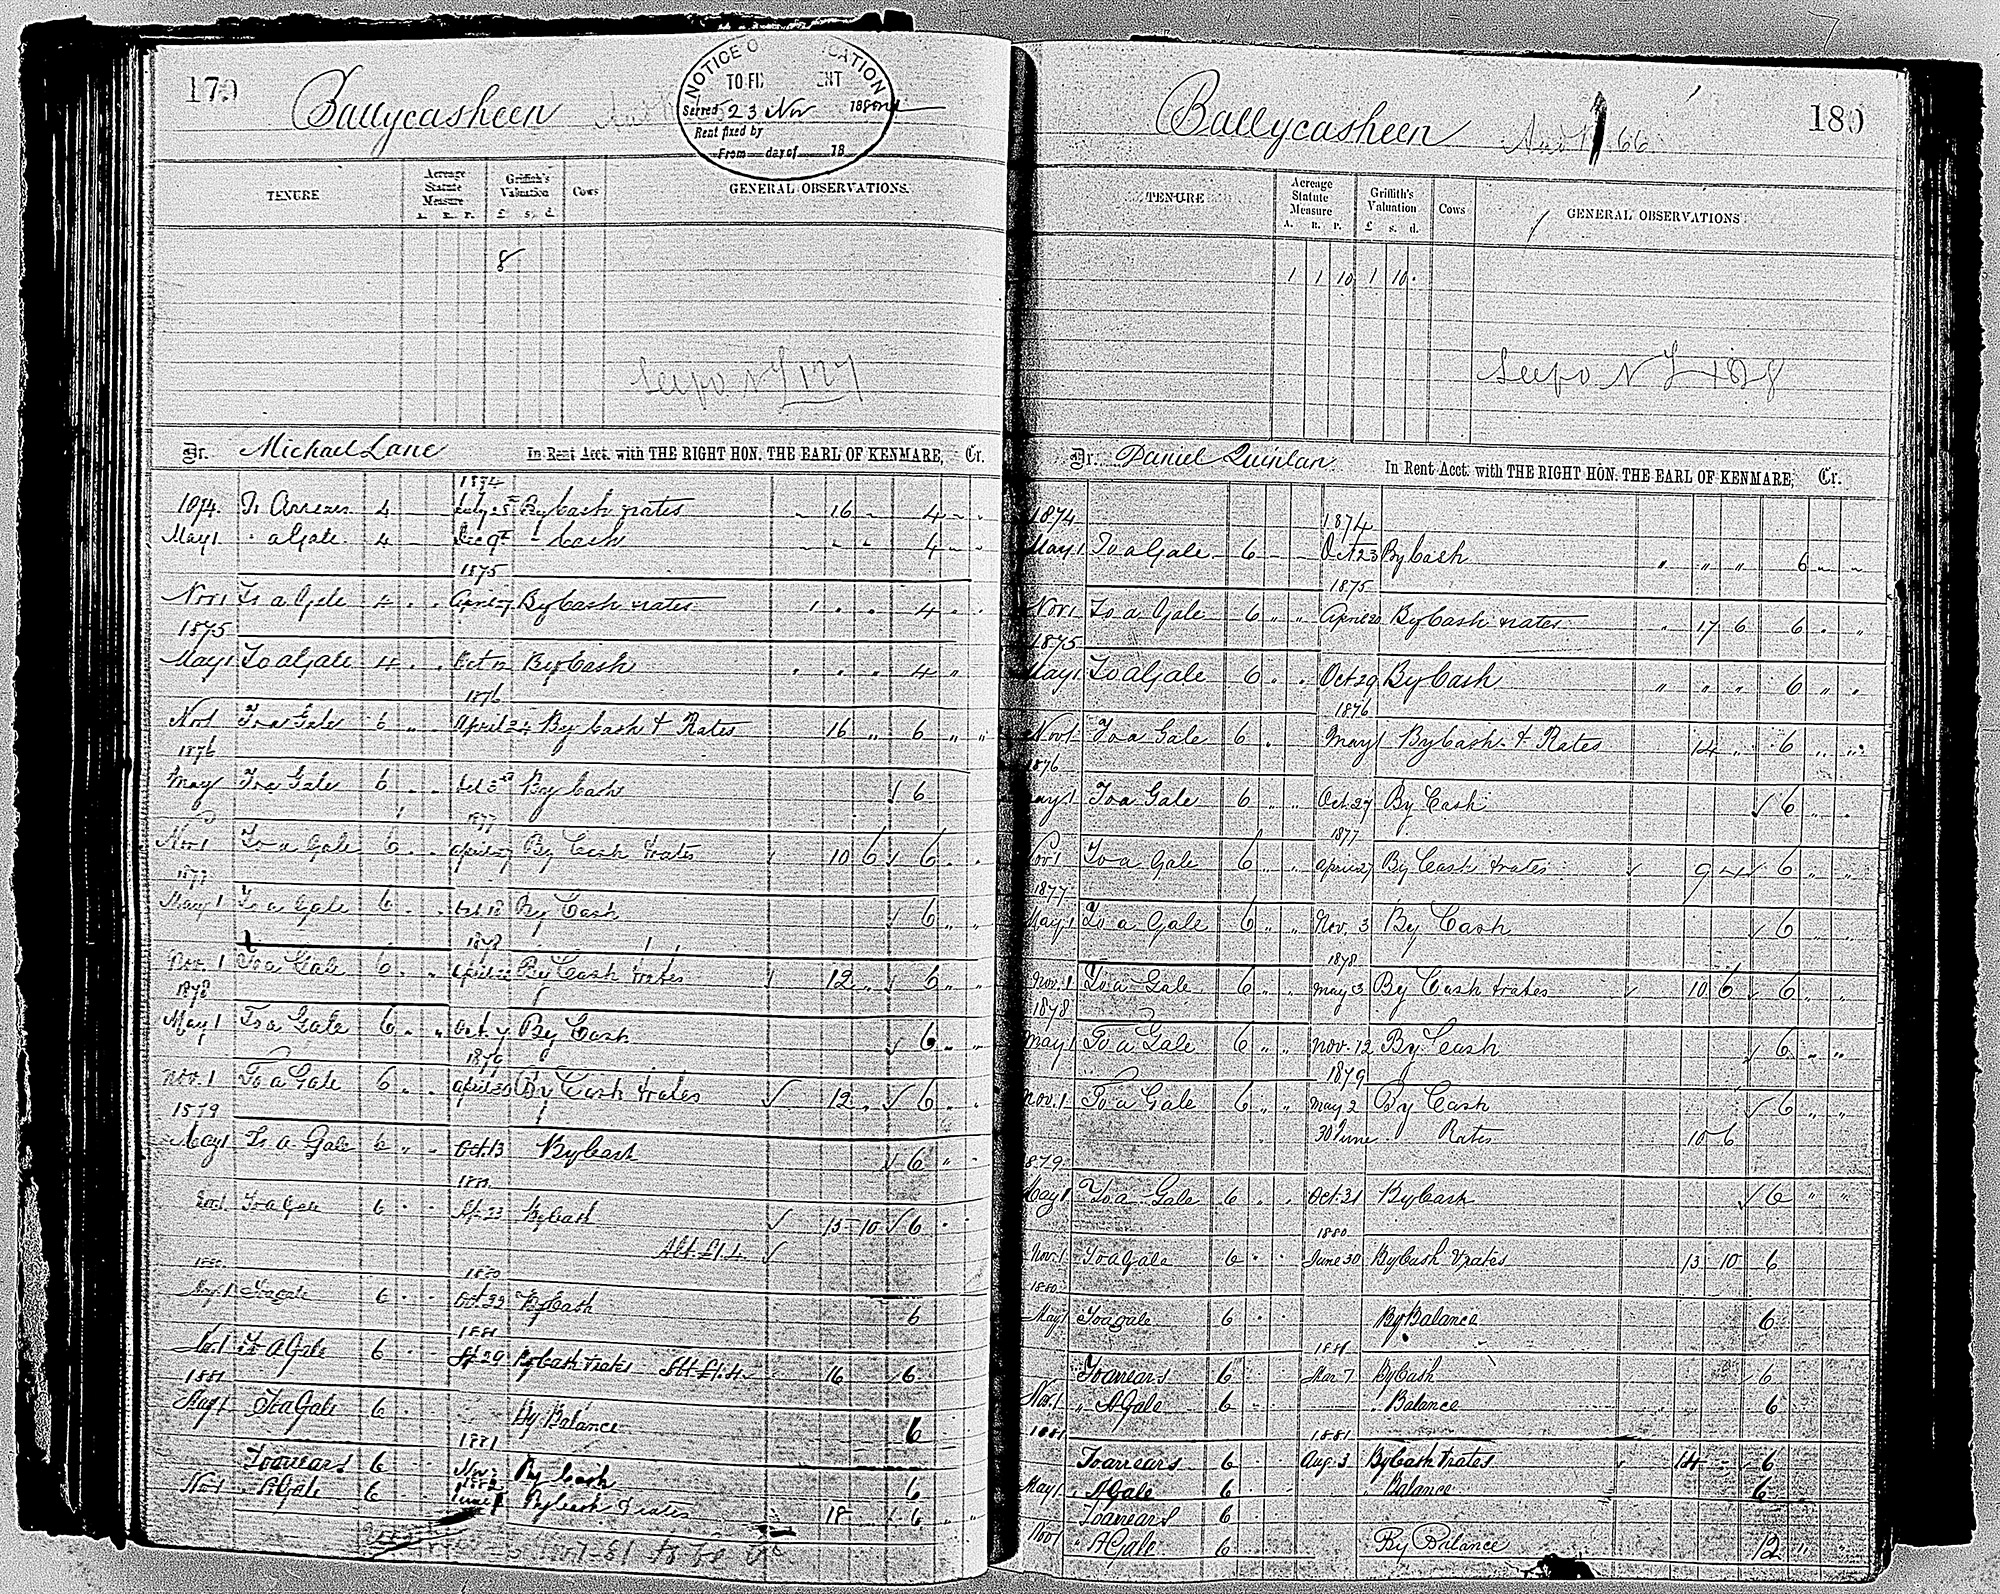 179
Ballycasheen
NOTICE O CATION
TO FI ENT
Served 23 Nov 188
Rent fixed by
From day of 18
TENURE
Acreage Statute Measure
A. R. P.
Griffith's Valuation
£ s. d.
Cows
GENERAL OBSERVATIONS.
8
See fo N L 127
Dr. Michael Lane In Rent Acct. with THE RIGHT HON. THE EARL OF KENMARE, Cr.
1874
1874 To Arrears 4 July 25 By Cash & rates 16 4
May 1 " a Gale 4 Dec 9th " Cash 4
1875
Nov 1 To a Gale 4 April 27 By Cash & rates 1 4
1875
May 1 To a Gale 4 Oct 12 By Cash 4
1876
Nov 1 To a Gale 6 April 24 By Cash & Rates 16 6
1876
May To a Gale 6 Oct 3rd By Cash 6
1877
Nov 1 To a Gale 6 April 27 By Cash & rates 10 6 6
1877
May 1 To a Gale 6 Oct 18 By Cash 6
1878
Nov. 1 To a Gale 6 April 22 By Cash & rates 12 6
1878
May 1 To a Gale 6 Oct. 7 By Cash 6
1879
Nov. 1 To a Gale 6 April 23 By Cash & rates 12 6
1879
May 1 To a Gale 6 Oct. 13 By Cash 6
1880
Nov 1 To a Gale 6 Ap. 23 By Cash 13 10 6
Abt. £1.4
1880
1880
May 1 To a Gale 6 Oct. 22 By Cash 6
1881
Nov 1 To A Gale 6 Ap 29 By Cash & rates Abt £1.4 16 6
1881
May 1 To a Gale 6 By Balance 6
1881
To arrears 6 Nov. By Cash 6
1882
Nov 1 " A Gale 6 June By Cash & rates 18 6
180
Ballycasheen 66
TENURE
Acreage Statute Measure
A. R. P.
Griffith's Valuation
£ s. d.
Cows
GENERAL OBSERVATIONS.
1 1 10 1 10
See fo N L 128
Dr. Daniel Quinlan In Rent Acct. with THE RIGHT HON. THE EARL OF KENMARE, Cr.
1874 1874
May 1 To a Gale 6 Oct 23 By Cash 6
1875
Nov 1 To a Gale 6 April 20 By Cash & rates 17 6 6
1875
May 1 To a Gale 6 Oct 29 By Cash 6
1876
Nov 1 To a Gale 6 May 1 By Cash & Rates 14 6
1876
May 1 To a Gale 6 Oct. 27 By Cash 6
1877
Nov 1 To a Gale 6 April 27 By Cash & rates 9 6
1877
May 1 To a Gale 6 Nov. 3 By Cash 6
1878
Nov. 1 To a Gale 6 May 3 By Cash & rates 10 6 6
1878
May 1 To a Gale 6 Nov. 12 By Cash 6
1879
Nov. 1 To a Gale 6 May 2 By Cash 6
30 June Rates 10 6
1879
May 1 To a Gale 6 Oct. 21 By Cash 6
1880
Nov. 1 To a Gale 6 June 30 By Cash & rates 13 10 6
1880
May 1 To a gale 6 By Balance 6
1881
To arrears 6 Mar 7 By Cash 6
Nov. 1 " A Gale 6 " Balance 6
1881 1881
To arrears 6 Aug. 3 By Cash & rates 14 6
May 1 " A Gale 6 " Balance 6
To arrears 6
Nov 1 " A Gale 6 By Balance 12